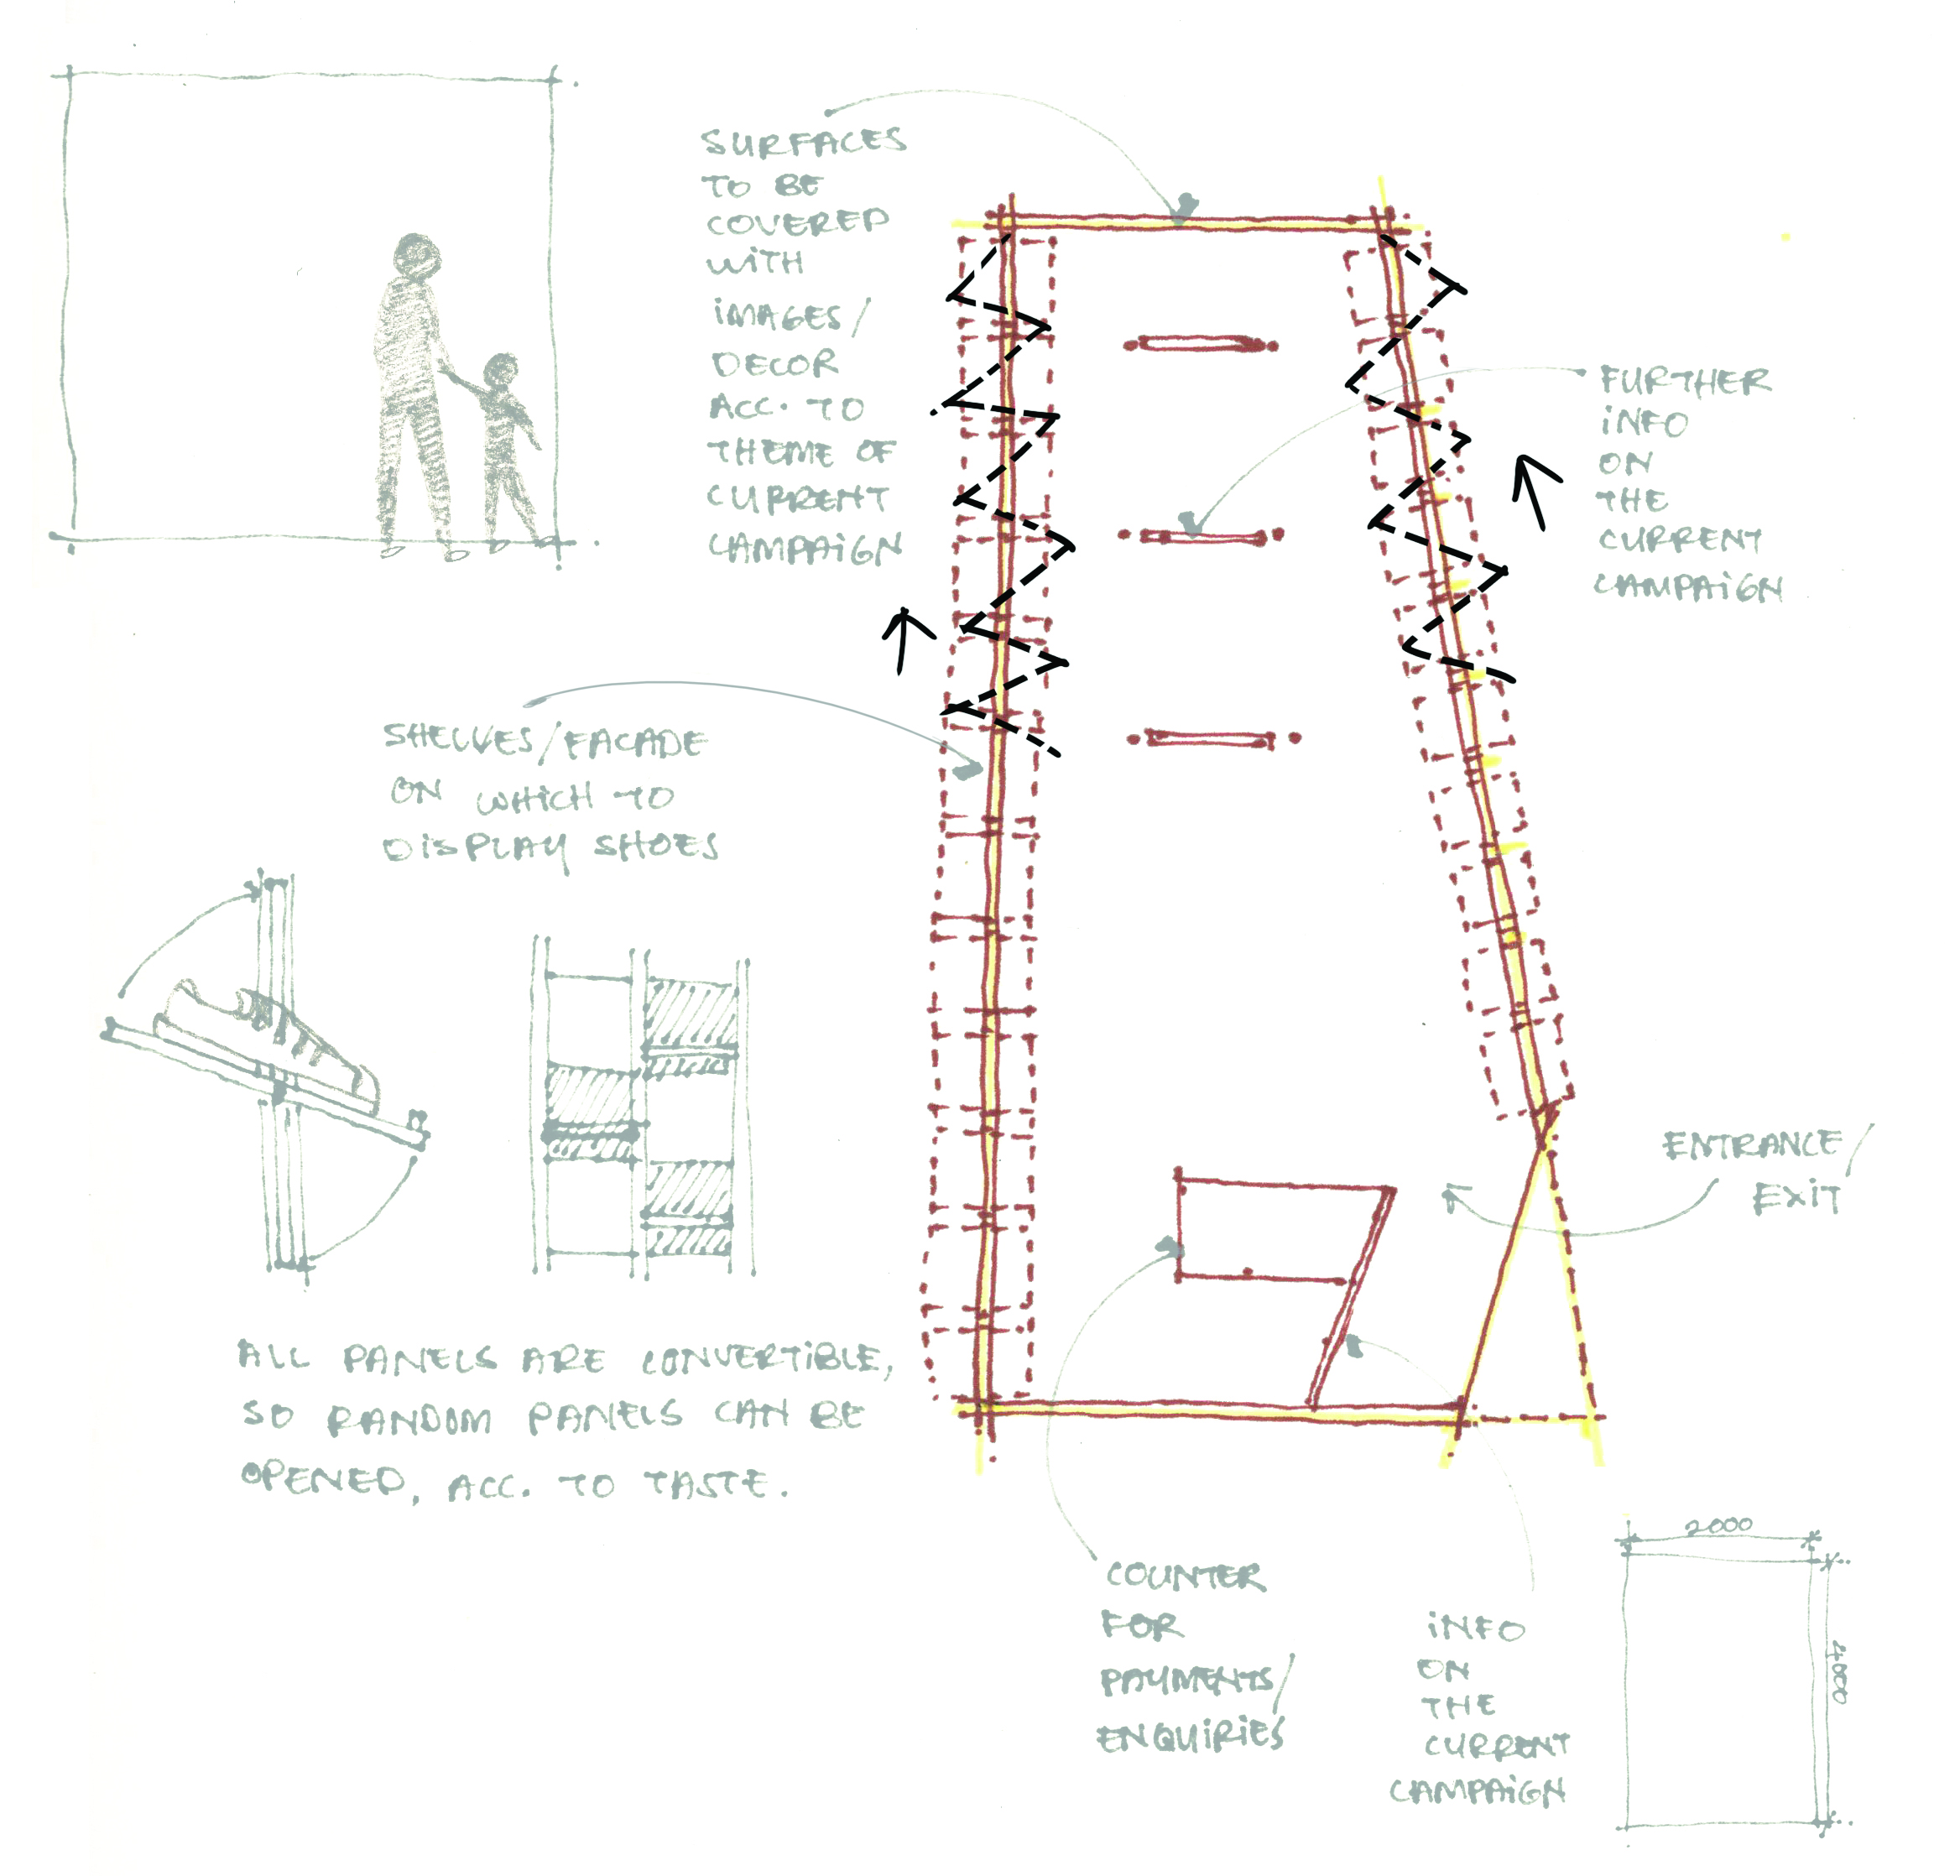 SURFACES
TO BE
COVERED
WITH
IMAGES/
DECOR
ACC. TO
THEME OF
CURRENT
CAMPAIGN
FURTHER
INFO
ON
THE
CURRENT
CAMPAIGN
SHELVES/FACADE
ON WHICH TO
DISPLAY SHOES
ENTRANCE/
EXIT
ALL PANELS ARE CONVERTIBLE,
SO RANDOM PANELS CAN BE
OPENED, ACC. TO TASTE.
COUNTER
FOR
PAYMENTS/
ENQUIRIES
INFO
ON
THE
CURRENT
CAMPAIGN
2000
4000